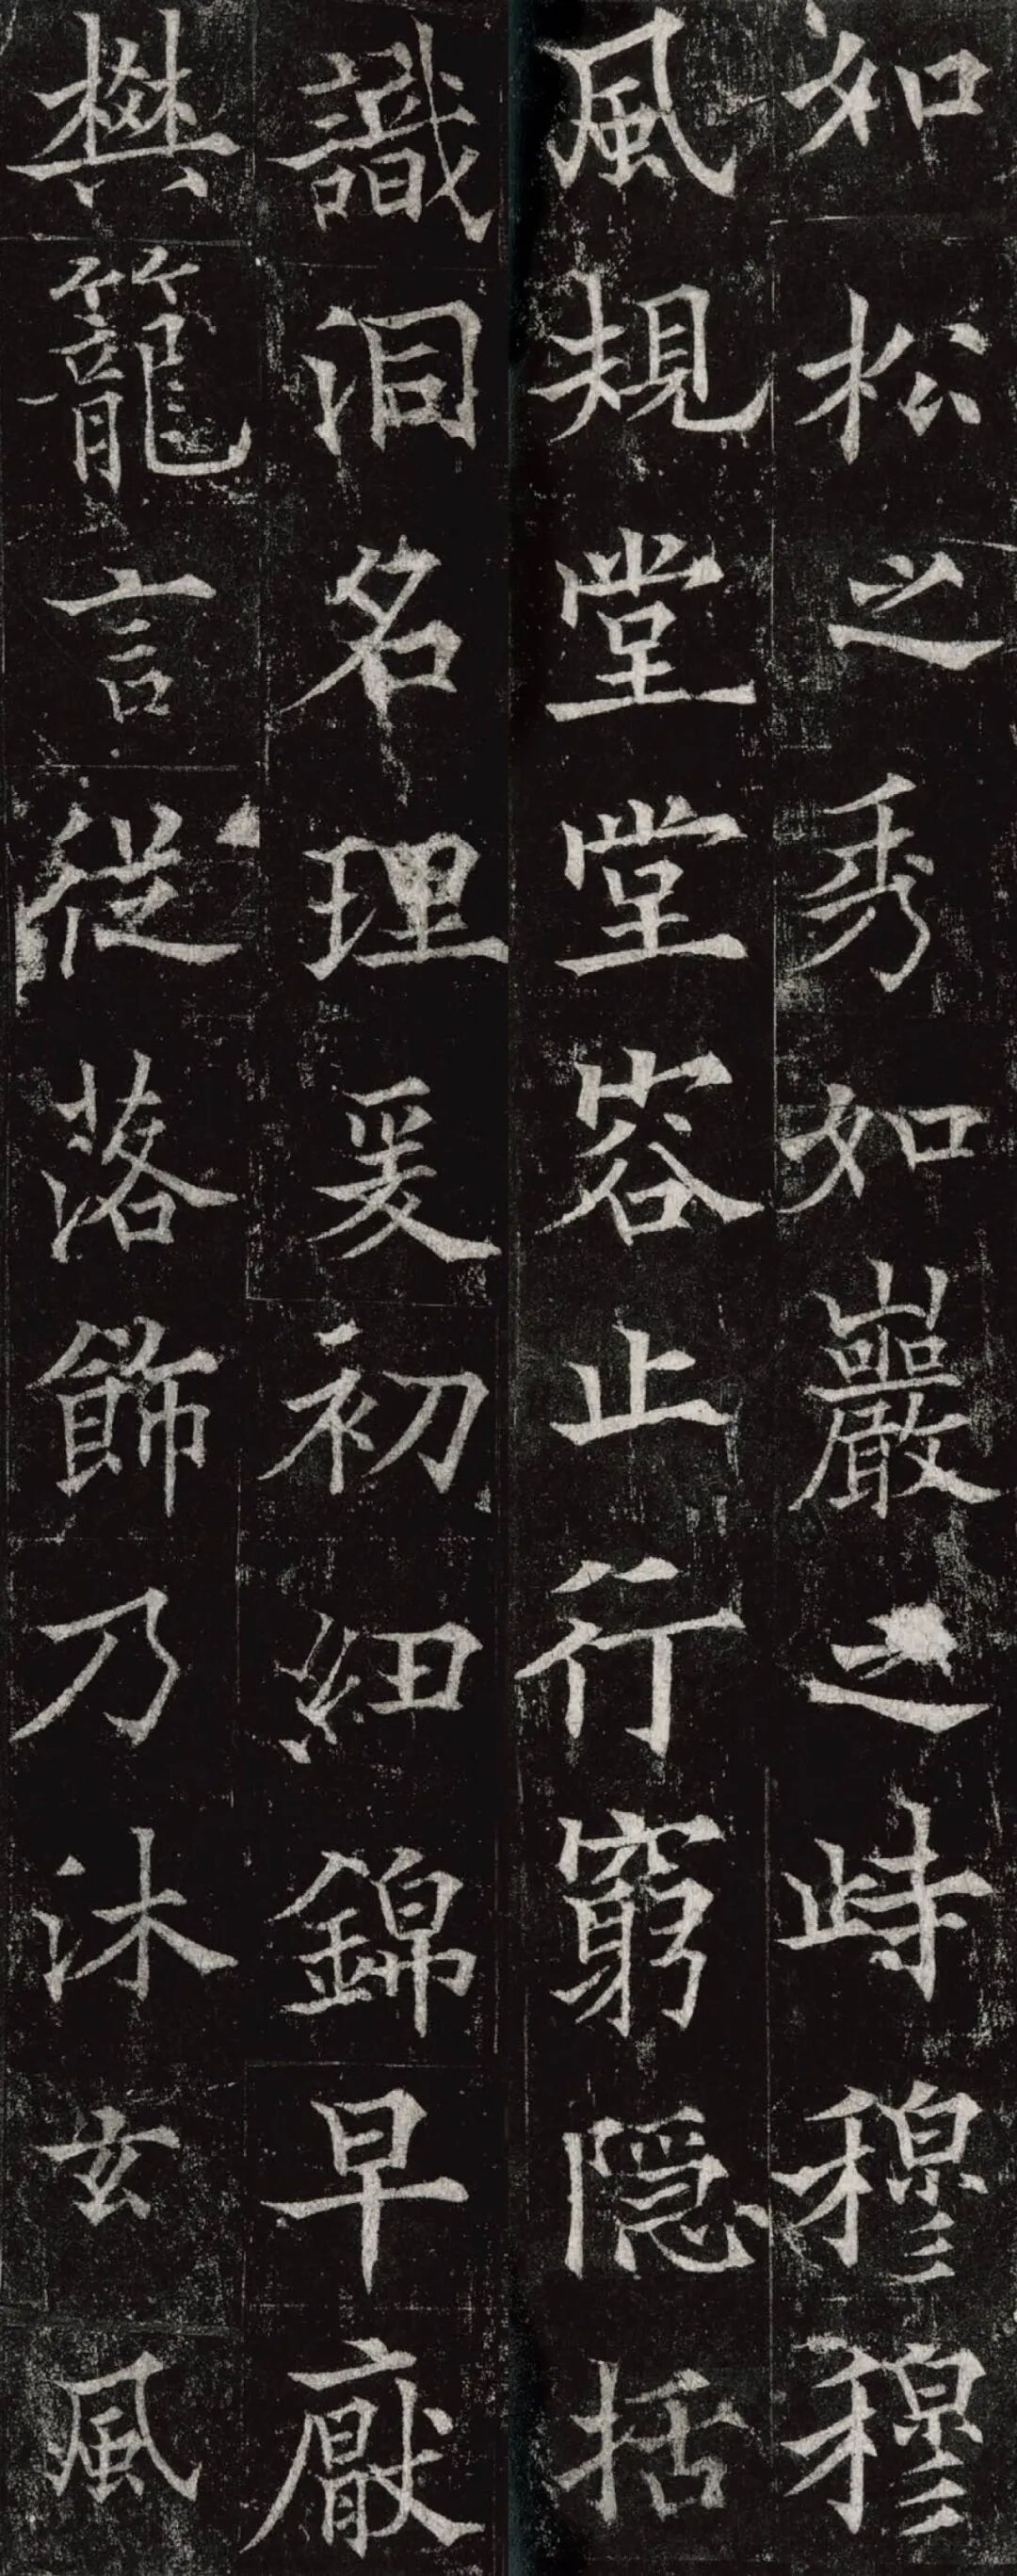 如松之秀如巖之峙穆穆
風規堂堂容止行窮隱括
識洞名理爰初紐錦早厭
樊籠言從落飾乃沐玄風